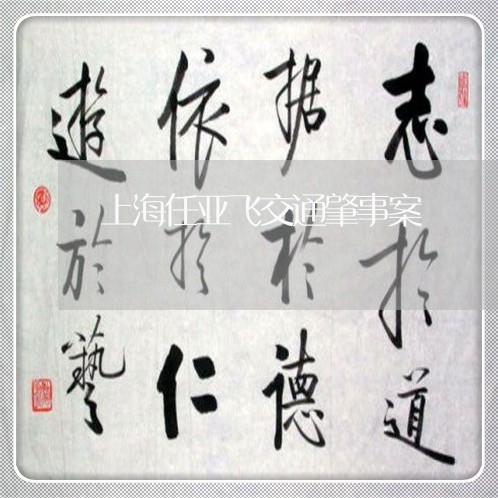 志於道
据於德
依於仁
遊於藝
上海任亚飞交通肇事案